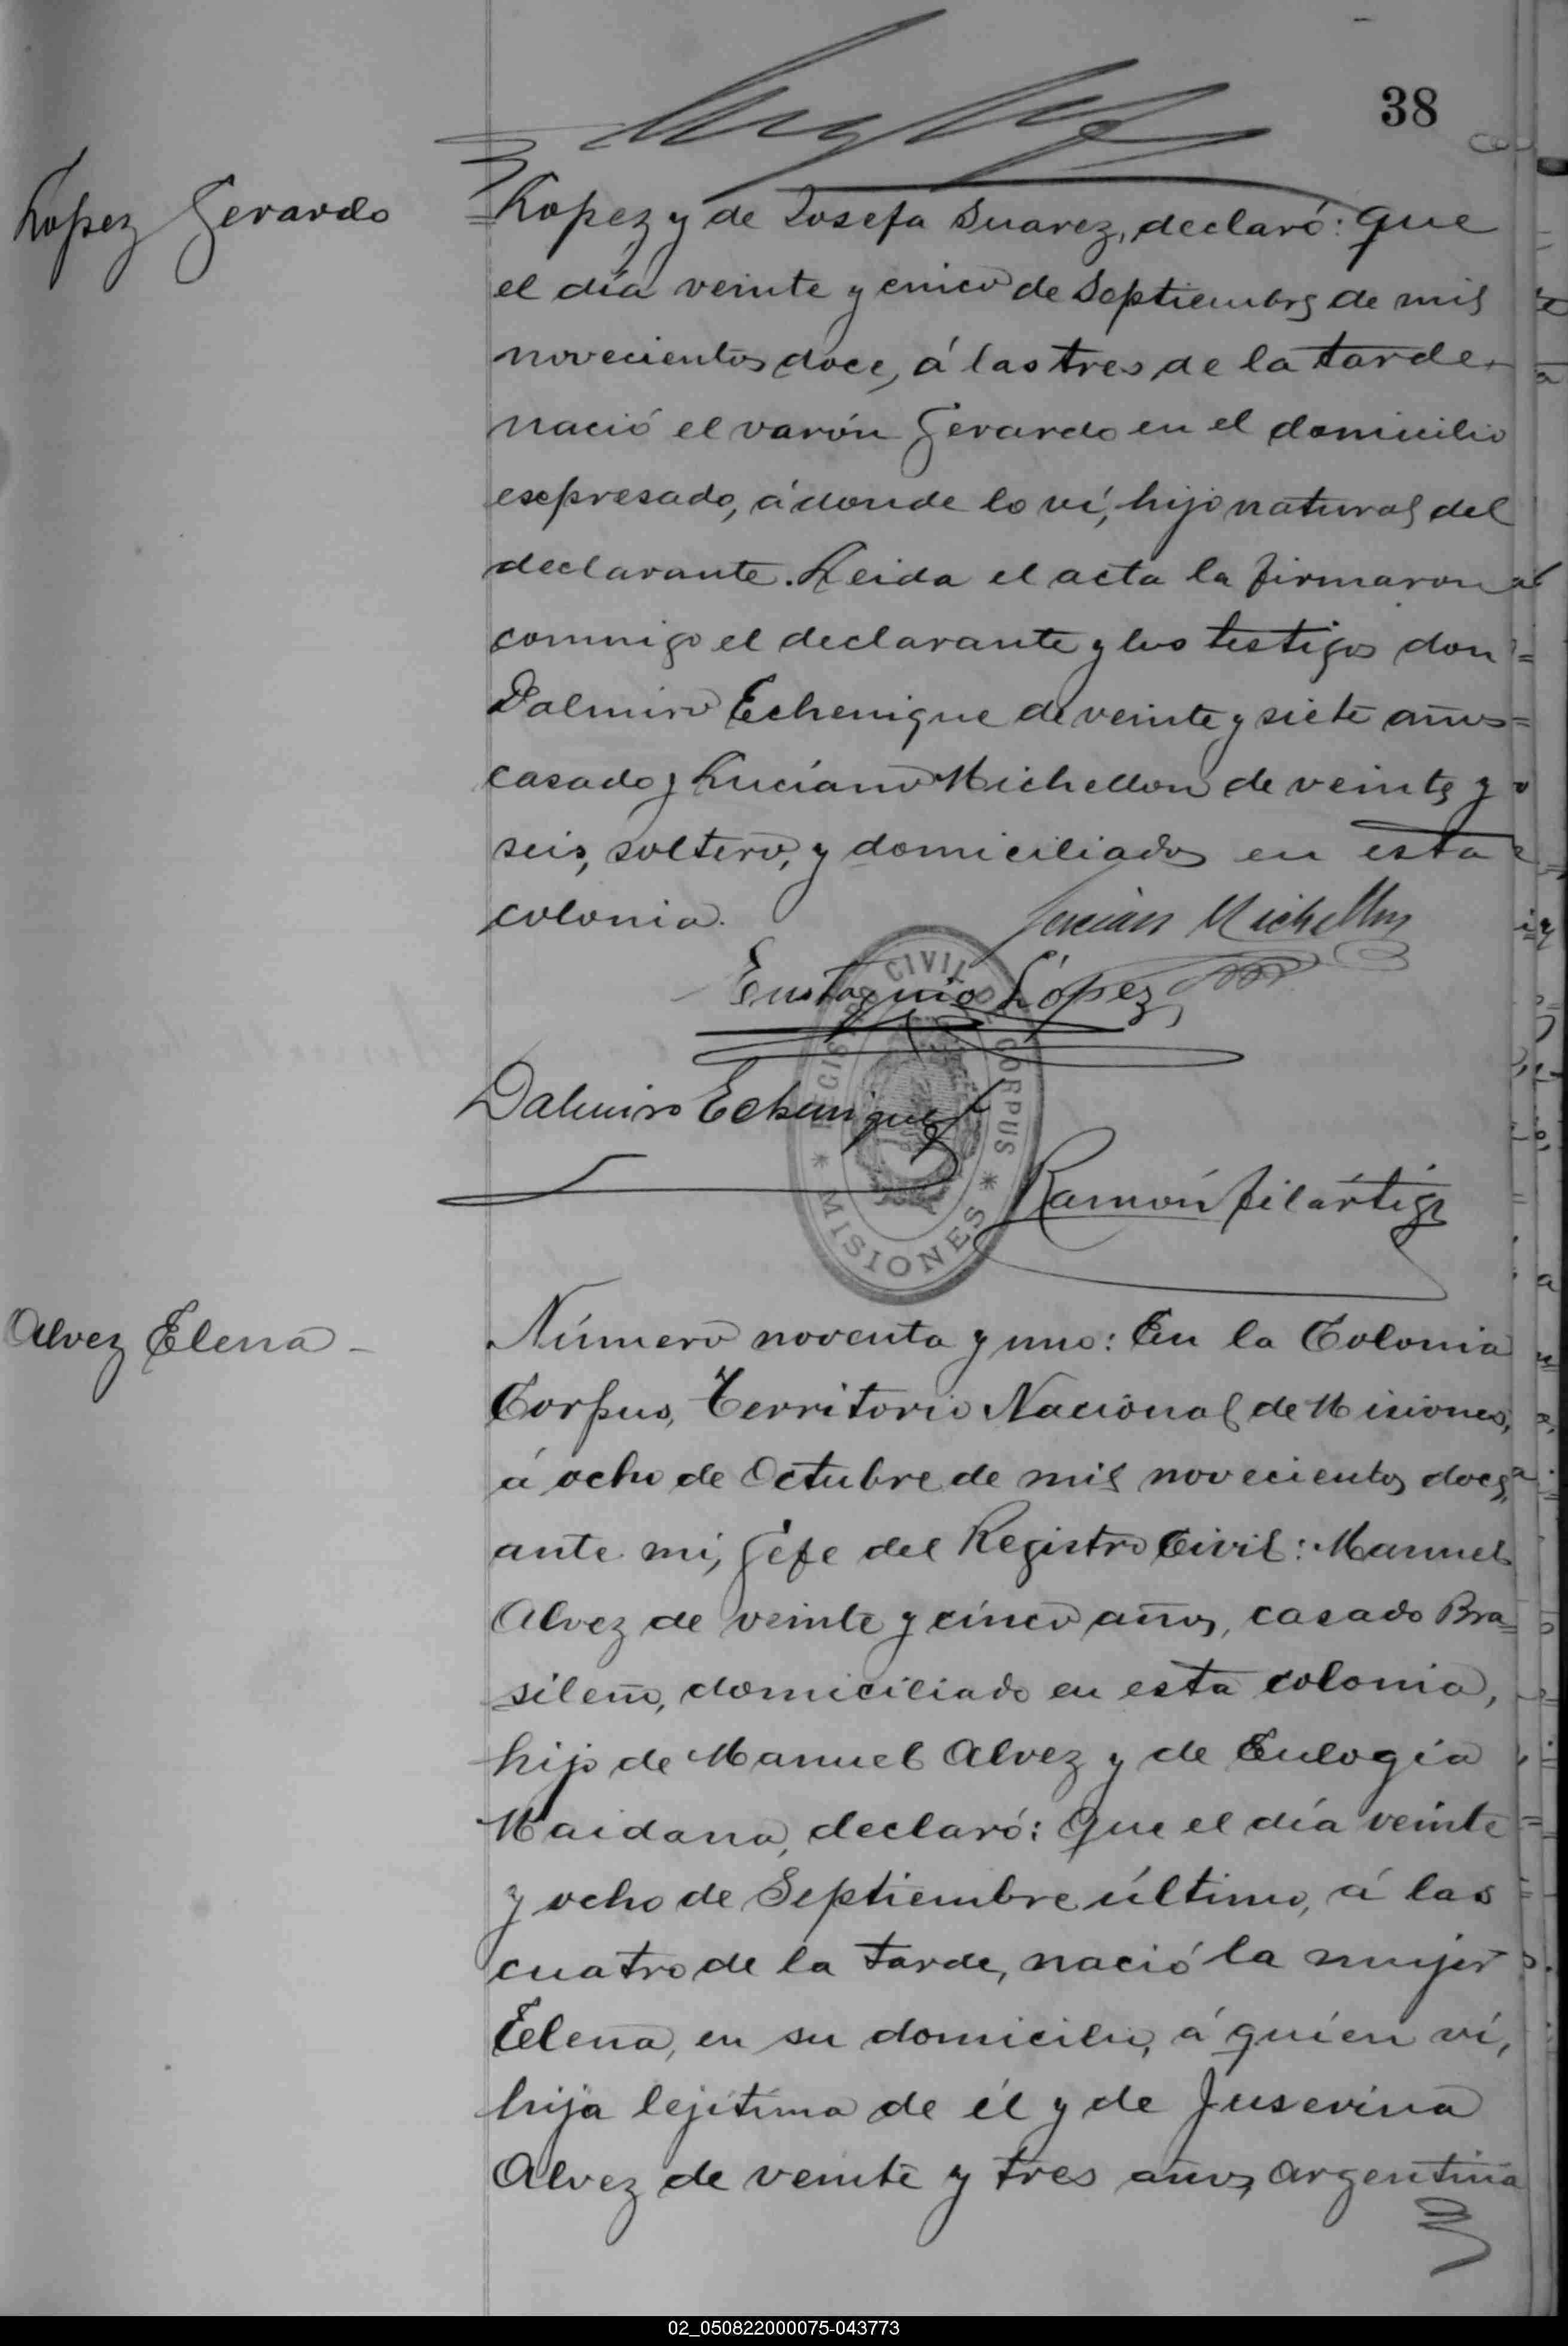 38
Lopez Gerardo
Lopez y de Josefa Suarez, declaró: que
el día veinte y cinco de Septiembre de mil
novecientos doce, á las tres de la tarde
nació el varón Gerardo en el domicilio
espresado, á donde lo ví, hijo natural del
declarante. Leida el acta la firmaron
conmigo el declarante y los testigos don
Dalmiro Echenique de veinte y siete años
casado y Luciano Michellon de veinte y
seis, soltero, y domiciliados en esta
colonia.
Michellon
Eustaquio López
Dalmiro Echenique
REGISTRO CIVIL CORPUS
* MISIONES *
Ramón Filártiga
Alvez Elena -
Número noventa y uno: En la Colonia
Corpus, Territorio Nacional de Misiones,
á ocho de Octubre de mil novecientos doce,
ante mi, Gefe del Registro Civil: Manuel
Alvez de veinte y cinco años, casado Bra=
sileño, domiciliado en esta colonia,
hijo de Manuel Alvez y de Eulogia
Maidana, declaró: Que el día veinte
y ocho de Septiembre último, á las
cuatro de la tarde, nació la mujer
Elena, en su domicilio, á quien ví,
hija lejítima de él y de Jusevina
Alvez de veinte y tres años, argentina
02_050822000075-043773